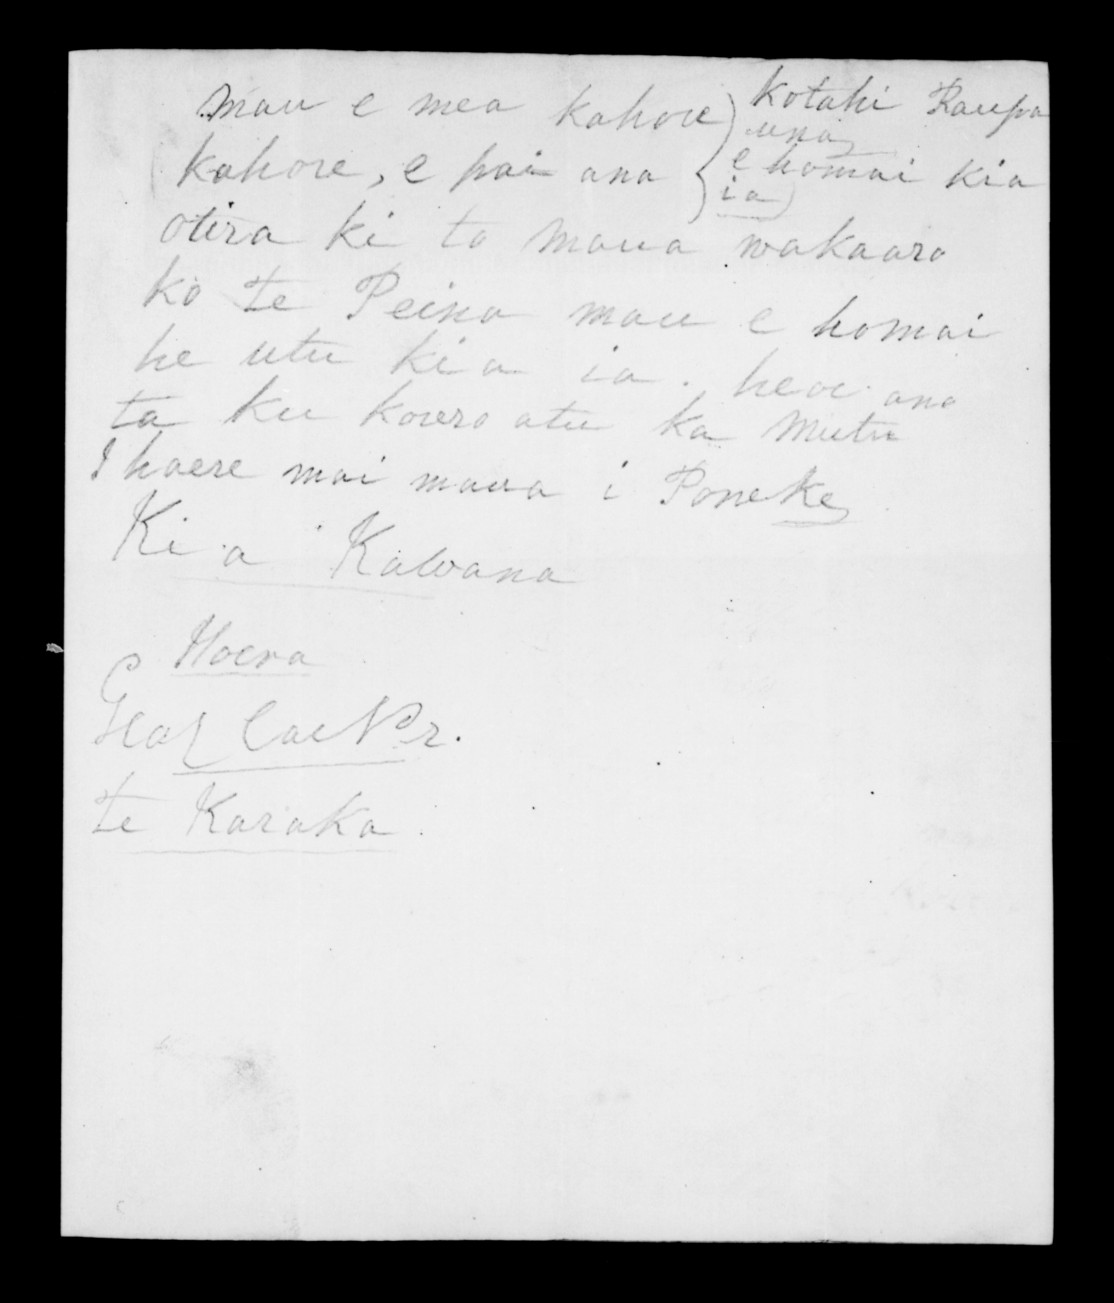 Mau e mea kahore
kahore, e pai ana
kotahi Raupa
una
e homai kia
ia
otira ki ta maua wakaaro
ko te Peina mau e homai
he utu kia ia. heoi ano
ta ku korero atu ka Mutu
I haere mai maua i Poneke
Ki a Kawana
Hoera
te Karaka